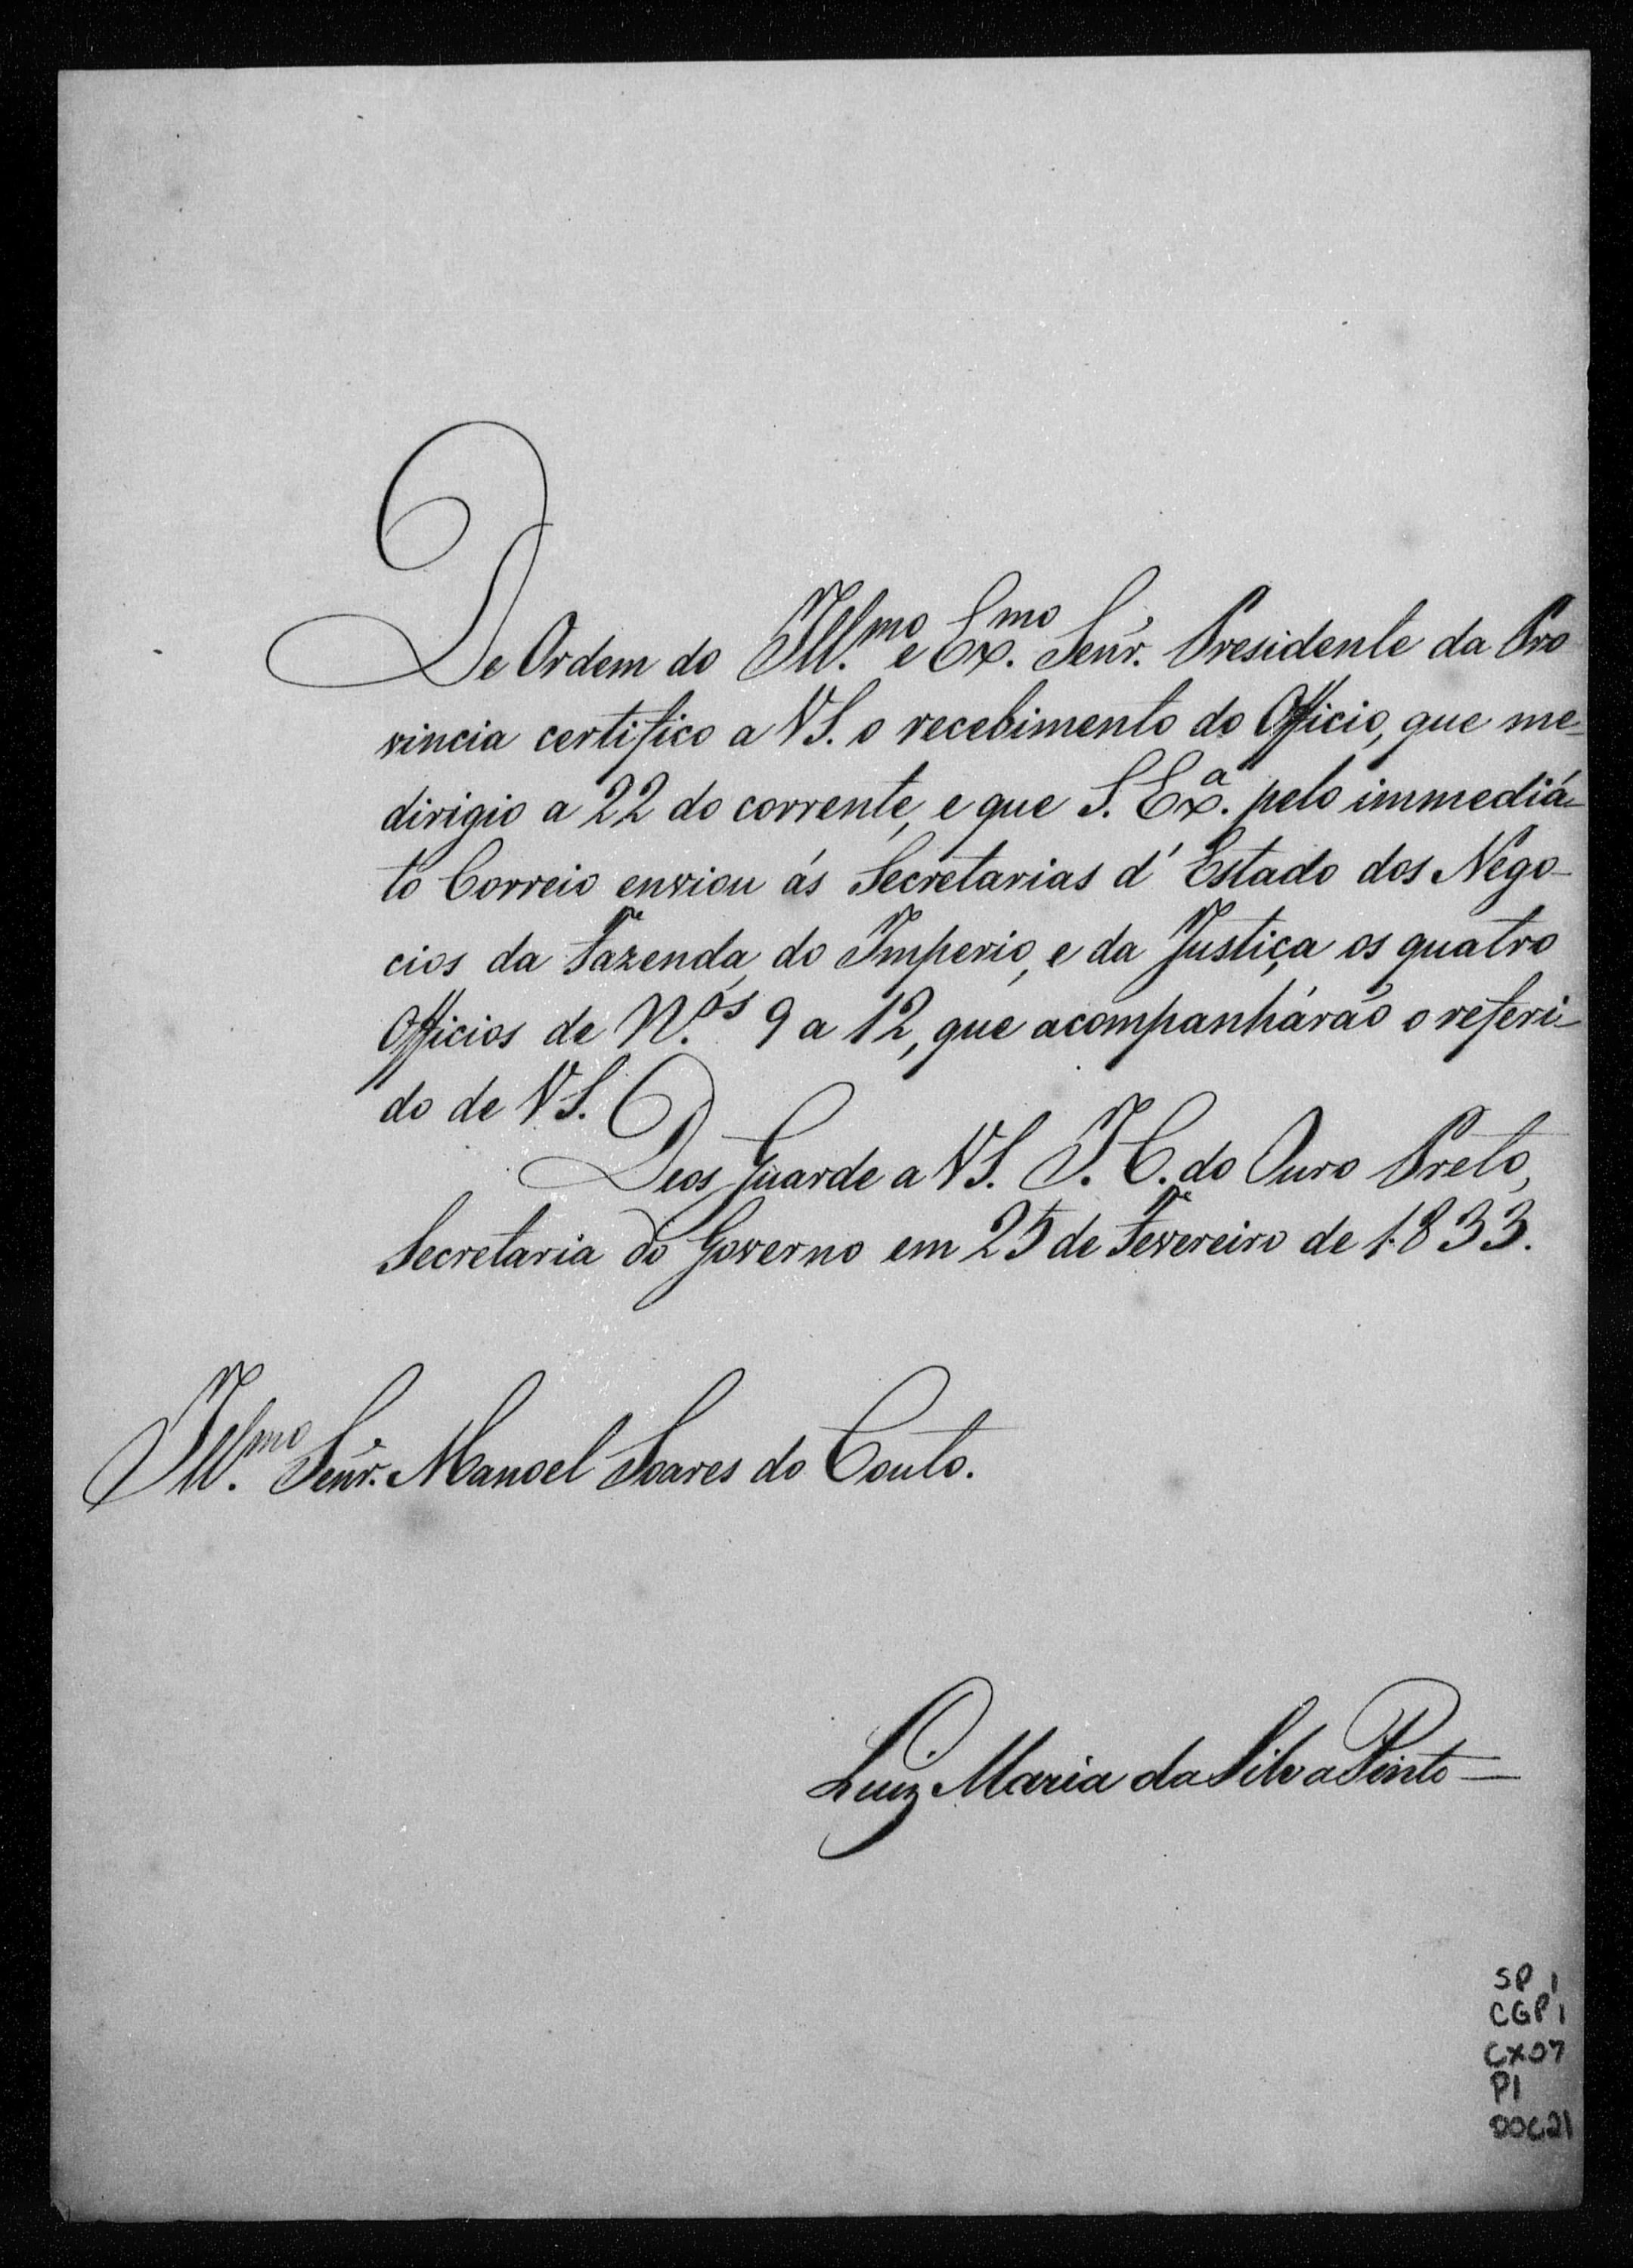 De Ordem do Ill.mo e Ex.mo Senr. Presidente da Pro
vincia certifico a VS. o recebimento do Officio, que me
dirigio a 22 do corrente, e que S. Ex.a pelo immediá-
to Correio enviou ás Secretarias d' Estado dos Nego-
cios da Fazenda, do Imperio, e da Justiça os quatro
Officios de N.os 9 a 12, que acompanhárão o referi-
do de VS.
Deos Guarde a VS. I. C. do Ouro Preto,
Secretaria do Governo em 25 de Fevereiro de 1833.
Ill.mo Senr. Manoel Soares do Couto.
Luiz Maria da Silva Pinto —
SP 1
CGP 1
CX07
P1
DOC21